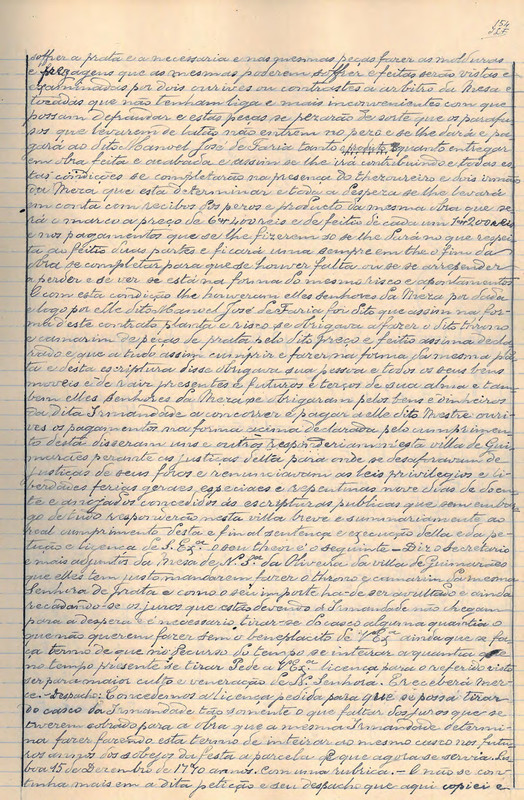 154
soffrer a prata e a necessaria e nas mesmas peças fazer as molduras
e frezagens que as mesmas poderem soffrer e feitas serão vistas e
examinadas por dois ourives ou contrastes a arbitrio da Mesa e
tocadas que não tenham liga e mais inconvenientes com que
possam defraudar e estas peças se pezarão de sorte que os parafu-
sos que levarem de latão não entrem no pezo e se lhe dará e pa-
gará ao dito Manoel José de Faria tanto quanto entregar
em obra feita e acabada e assim se lhe irá contribuindo e todas es-
tas condições se completarão na presença do thezoureiro e dois irmãos
da Meza que esta determinar e toda a despeza se lhe levará
em conta com recibos dos pezos e producto da mesma obra que se-
rá o marco a preço de 6400 reis e de feitio de cada um 1200 reis
e nos pagamentos que se lhe fizerem só se lhe dará no que respei-
ta ao feitio duas partes e ficará uma sempre em the o fim da
obra se completar para que se houver falta ou se se arrepender
a perder e se ver se está na forma do mesmo risco e apontamentos
E com esta condição lhe houveram elles senhores da Meza por dada
e logo por elle dito Manoel José de Faria foi dito que assim na for-
ma d'este contrato planta e risco se obrigava a fazer o dito throno
e camarim de peças de prata pelo dito preço e feitio assima decla-
rado e que a tudo assim cumprir e fazer na forma da mesma plan-
ta e desta escriptura disse obrigava sua pessoa e todos os seus bens
moveis e de raiz presentes e futuros e terços de sua alma e tam-
bem elles senhores da Meza se obrigaram pelos bens e dinheiros
da dita Irmandade a concorrer e pagar a elle dito Mestre ouri-
ves os pagamentos na forma acima declarada pelo cumprimen-
to deste disseram uns e outros responderiam n'esta villa de Gui-
marães perante as justiças della para onde se desaforavam de
justiças de seus foros e renunciavam as leis privilegios e li-
berdades ferias geraes, especiaes e repentinas nove dias de doen-
te e anojados concedidos ás escripturas publicas que sem embar-
go de tudo responderão nesta villa breve e summariamente ao
real cumprimento desta e final sentença e execução della e da pe-
tição e licença de S. Ex.ª o seu theor é o seguinte – Diz o Secretario
e mais adjuntos da Mesa de N. Sr.ª da Oliveira da villa de Guimarães
que elles tem justo mandarem fazer o throno e camarim da mesma
Senhora de prata e como o seu importe ha-de ser avultado e ainda
recadando-se os juros que estão devendo á Irmandade não chegam
para a despeza e é necessario tirar-se do casco alguma quantia o
que não querem fazer sem o beneplacito de V. Ex.ª ainda que se fa-
ça termo de que no decurso do tempo se inteirar a quantia que
no tempo presente se tirar Pede a V. Ex.ª licença para o referido visto
ser para maior culto e veneração de N. Senhora. E receberá mer-
ce. – Despacho: Concedemos a licença pedida para que se possa tirar
do casco da Irmandade tão sómente o que faltar dos juros que se
tiverem cobrado para a obra que a mesma Irmandade determi-
na fazer fazendo esta termo de inteirar ao mesmo casco nos futu-
ros annos dos sobejos da festa a parcela de que agora se servir. Lis-
boa 15 de Dezembro de 1770 annos. Com uma rubrica. – E não se con-
tinha mais em a dita petição e seu despacho que aqui copiei e